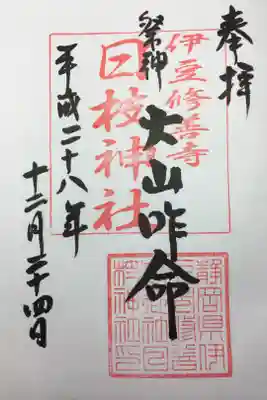 奉拝
伊豆修善寺
日枝神社
祭神 大山咋命
平成二十八年
十二月二十四日
静岡県伊